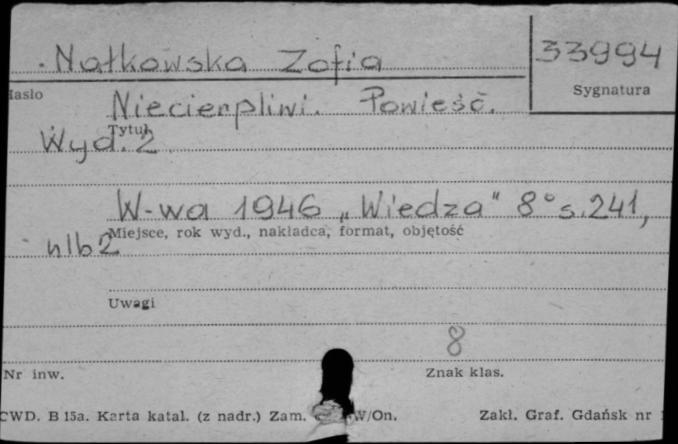 Nałkowska Zofia
33994
Hasło
Sygnatura
Niecierpliwi. Powieść.
Tytuł
Wyd. 2
W-wa 1946 „Wiedza" 8° s. 241,
Miejsce, rok wyd., nakładca, format, objętość
nlb 2
Uwagi
8
Nr inw.
Znak klas.
CWD. B 15a. Karta katal. (z nadr.) Zam. W/On.
Zakł. Graf. Gdańsk nr